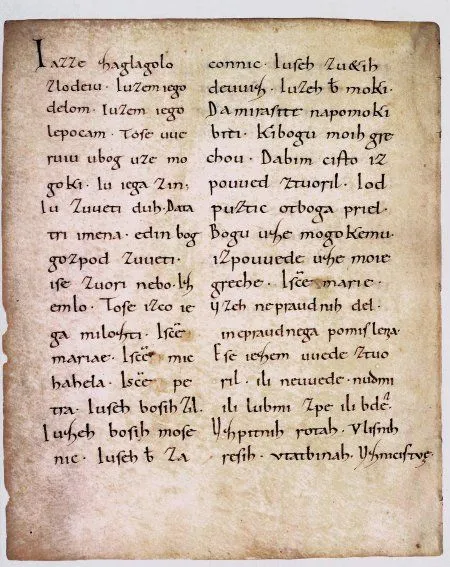 Iazze zaglagolo
zlodeiu · Iuzem iego
delom · Iuzem iego
lepocam · Tose uue
ruiu ubog uze mo
goki · Iu iega zin;
Iu zuueti duh · Data
tri imena · edin bog
gozpod zuueti ·
ise zuori nebo · Iz
emlo · Tose izco ie
ga milozti · Iscē
mariae · Iscē mic
hahela · Iscē pe
tra · Iuseh bosih zil ·
Iuzeh bosih mose
nic · Iuseh ƀ za
connic · Iuseh zu&ih
deuuiz · Iuzeh ƀ moki ·
Da mirasite napomoki
biti · Kibogu moih gre
chou · Dabim cisto iz
pouued ztuoril · Iod
puztic otboga priel ·
Bogu uze mogokemu ·
izpouuede uze moie
greche · Iscē marie ·
uzeh nepraudnih del ·
inepraudnega pomislena ·
Ese iezem uuede ztuo
ril · ili neuuede · nudmi
ili lubmi zpe ili bde ·
Uzpitnih rotah · Vlisnih
resih · vtatbinah · Uznicistue ·